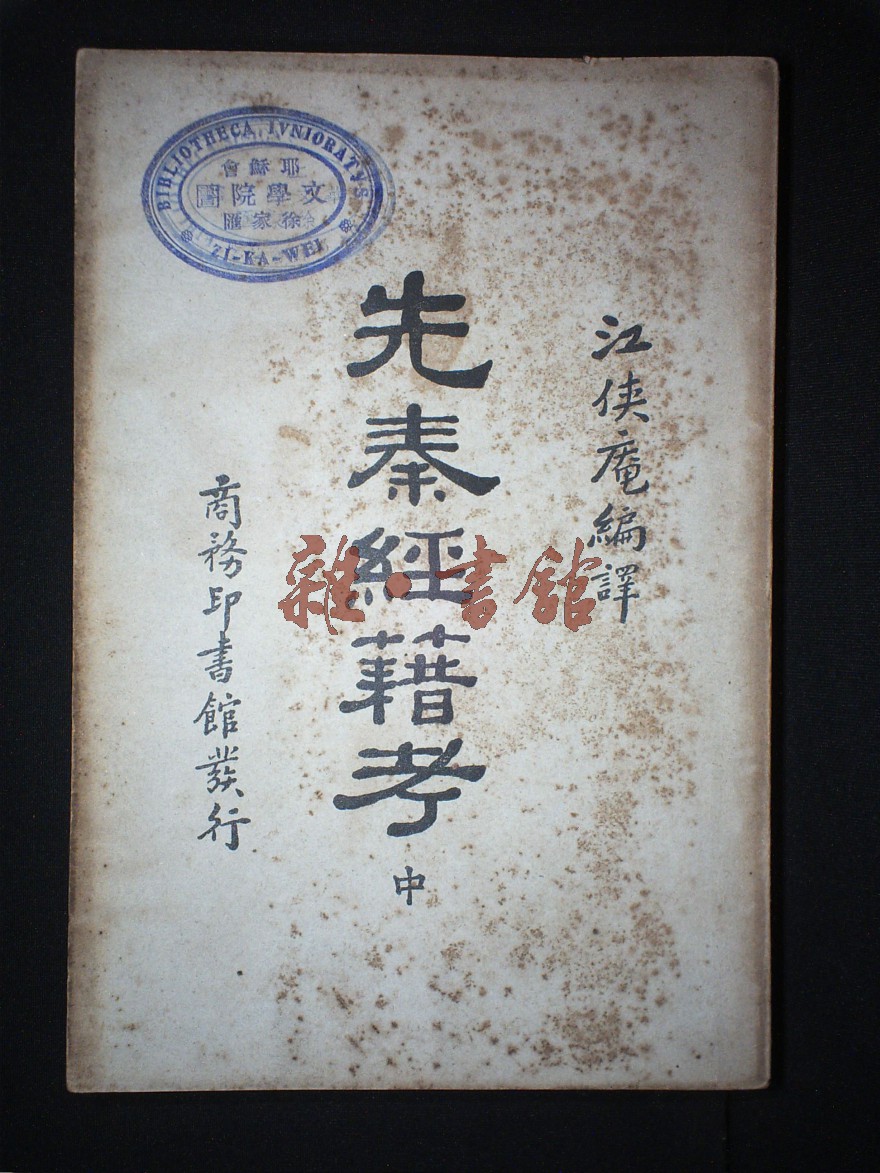 江俠庵編譯
先秦經籍考
中
商務印書館發行
BIBLIOTHECA IVNIORATVS
耶穌會
文學院圖
徐家匯
ZI-KA-WEI
雜·書館